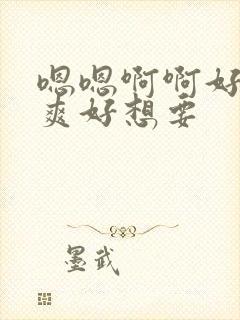 嗯嗯啊啊好
爽好想要
墨武